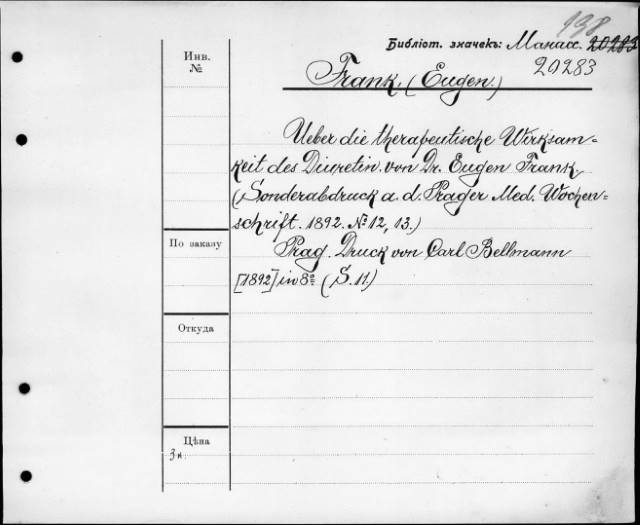 198
Библіот. значекъ: Манас. 20283
20283
Инв.
№
Frank, (Eugen.)
Ueber die therapeutische Wirksam=
keit des Diuretin. von Dr. Eugen Frank,
(Sonderabdruck a. d. Prager Med. Wochen=
schrift. 1892. № 12, 13.)
По заказу
Prag. Druck von Carl Bellmann
[1892] in 8º (S. 11.)
Откуда
Цѣна
3н.